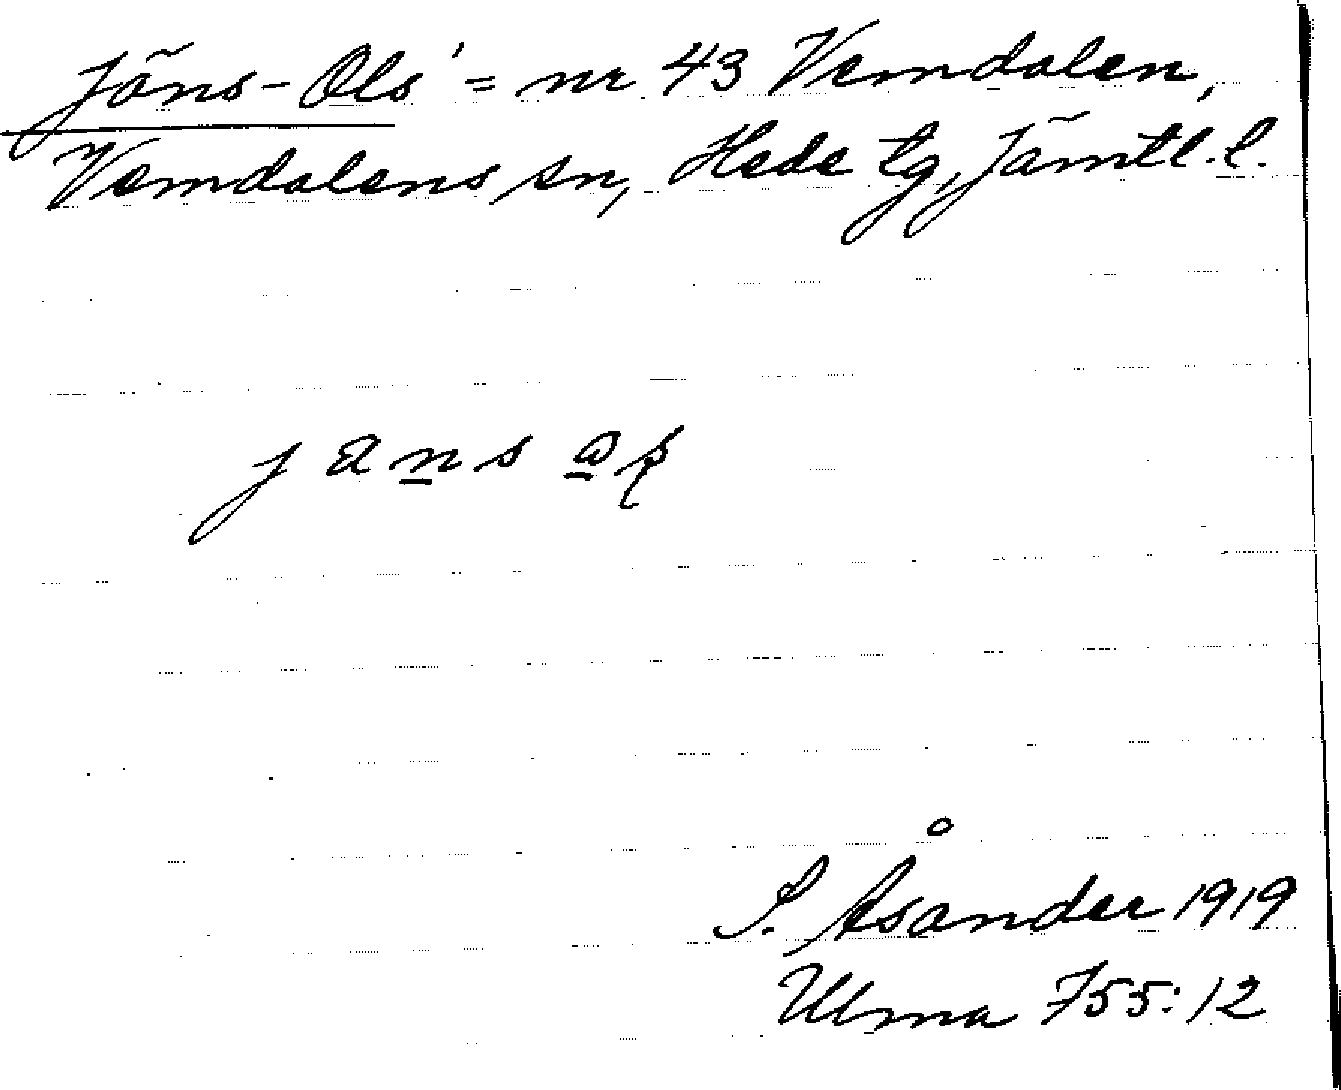 Jöns-Ols' = nr 43 Vemdalen,
Vemdalens sn, Hede tg, Jämtl. l.
S. Åsander 1919
Ulma 755:12